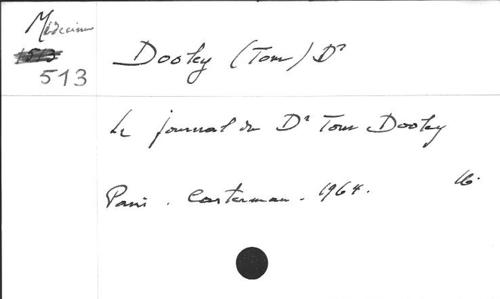 Médecine
513
Dooley (Tom) Dr
Le journal du Dr Tom Dooley
Paris. Casterman. 1964. 16.